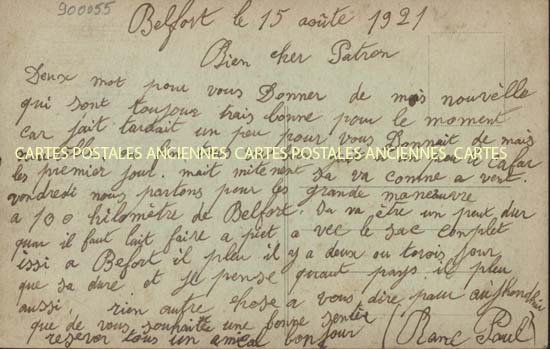 900055
Belfort le 15 août 1921
Bien cher Patron
Deux mot pour vous Donner de mes nouvèlle
qui sont toujour trais bonne pour le moment
car jait tardait un peu pour vous Donnait de mais
CARTES POSTALES ANCIENNES CARTES POSTALES ANCIENNES CARTES
les premier jour. mait mitenent sa va contne a vent.
vondredi nous partons pour les grande maneuvre
a 100 kilomètre de Belfort. Sa va être un peut dur
quar il faut lait faire a piet a vec le sac complet
issi a Befort il pleu il y a deux ou torois jour
que sa dure. et je pense quant pays il pleu
aussi, rien autre chose a vous dire pour
que de vous souhaitte une bonne sentér
resevor tous un amical bonjour